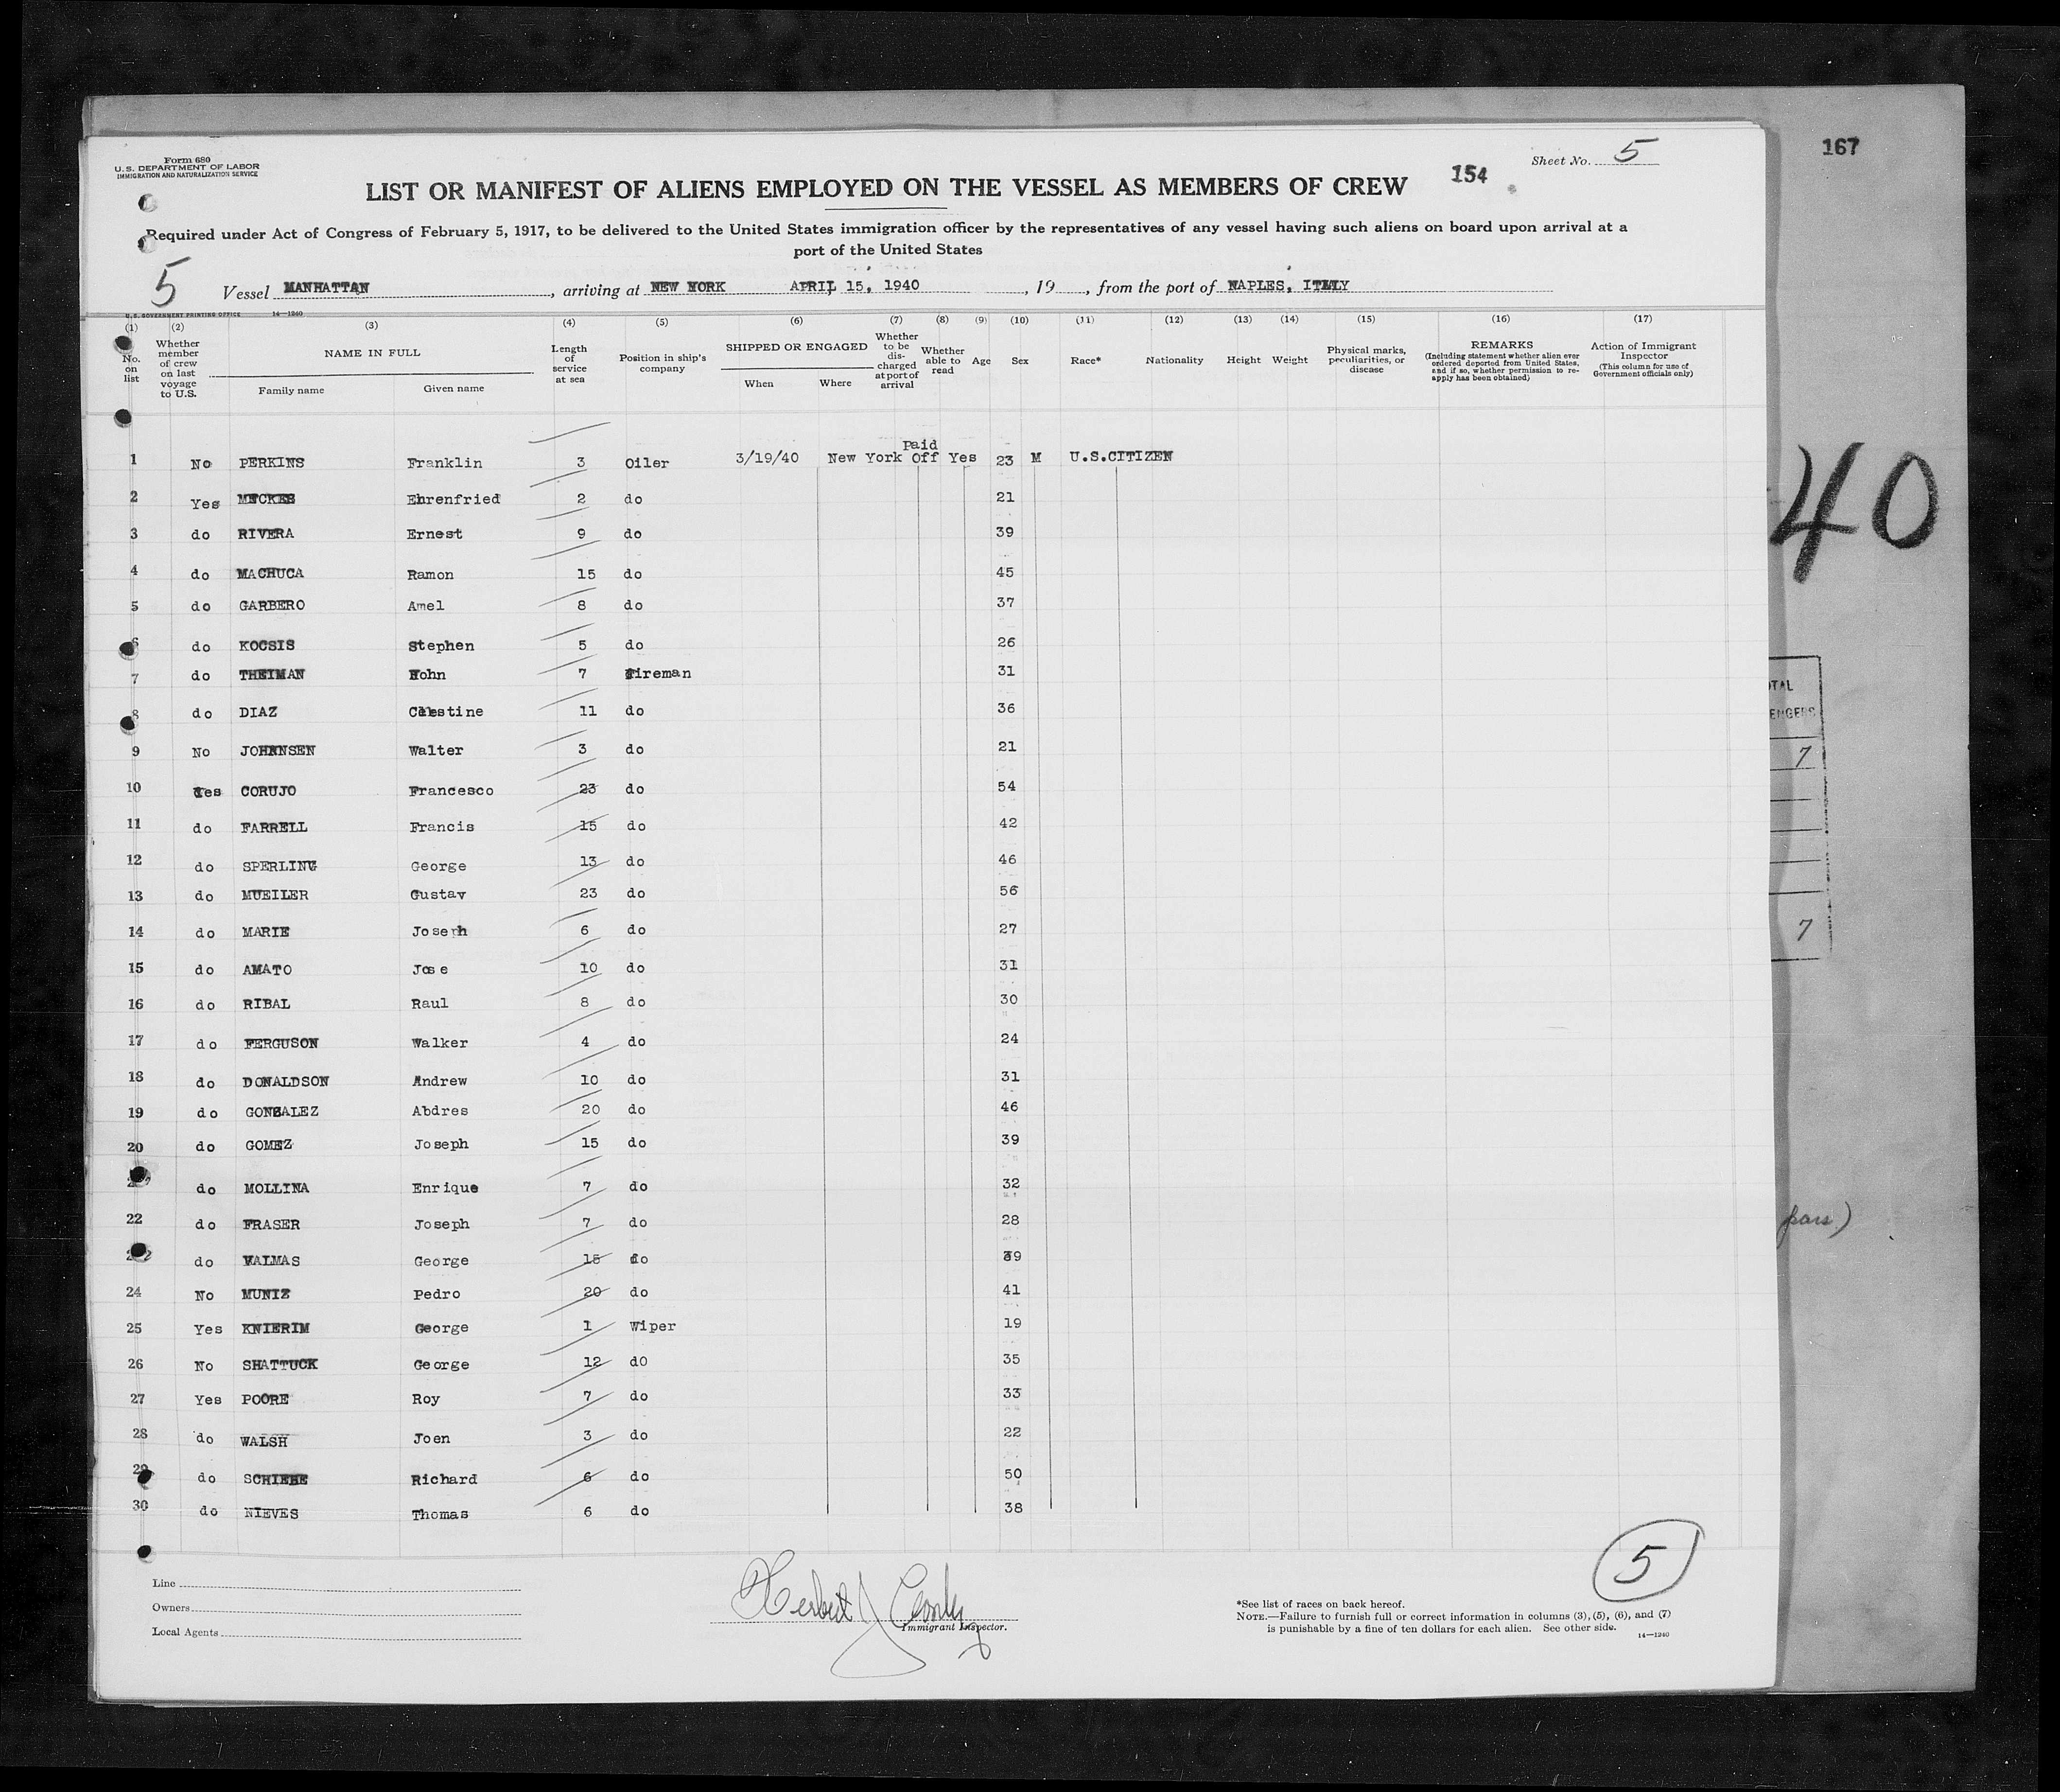 167
Form 680
U. S. DEPARTMENT OF LABOR
IMMIGRATION AND NATURALIZATION SERVICE
Sheet No. 5
154
LIST OR MANIFEST OF ALIENS EMPLOYED ON THE VESSEL AS MEMBERS OF CREW
Required under Act of Congress of February 5, 1917, to be delivered to the United States immigration officer by the representatives of any vessel having such aliens on board upon arrival at a
port of the United States
5 Vessel MANHATTAN, arriving at NEW YORK APRIL 15, 1940, 19, from the port of NAPLES, ITALY
U.S. GOVERNMENT PRINTING OFFICE 14—1240
(1) (2) (3) (4) (5) (6) (7) (8) (9) (10) (11) (12) (13) (14) (15) (16) (17)
No. on list
Whether member of crew on last voyage to U.S.
NAME IN FULL
Family name Given name
Length of service at sea
Position in ship's company
SHIPPED OR ENGAGED
When Where
Whether to be discharged at port of arrival
Whether able to read
Age
Sex
Race*
Nationality
Height
Weight
Physical marks, peculiarities, or disease
REMARKS
(Including statement whether alien ever ordered deported from United States, and if so, whether permission to re-apply has been obtained)
Action of Immigrant Inspector
(This column for use of Government officials only)
1 No PERKINS Franklin 3 Oiler 3/19/40 New York Paid Off Yes 23 M U.S.CITIZEN
2 Yes Ehrenfried 2 do 21
3 do RIVERA Ernest 9 do 39
4 do MACHUCA Ramon 15 do 45
5 do GARBERO Amel 8 do 37
6 do KOCSIS Stephen 5 do 26
7 do THEIMAN 7 Fireman 31
8 do DIAZ Celestine 11 do 36
9 No JOHANSEN Walter 3 do 21
10 Yes CORUJO Francesco 23 do 54
11 do FARRELL Francis 15 do 42
12 do SPERLING George 13 do 46
13 do MUEILER Gustav 23 do 56
14 do MARIE Joseph 6 do 27
15 do AMATO Jose 10 do 31
16 do RIBAL Raul 8 do 30
17 do FERGUSON Walker 4 do 24
18 do DONALDSON Andrew 10 do 31
19 do GONZALEZ Abdres 20 do 46
20 do GOMEZ Joseph 15 do 39
do MOLLINA Enrique 7 do 32
22 do FRASER Joseph 7 do 28
do VALMAS George 15 do 39
24 No MUNIZ Pedro 20 do 41
25 Yes KNIERIM George 1 Wiper 19
26 No SHATTUCK George 12 dO 35
27 Yes POORE Roy 7 do 33
28 do WALSH Joen 3 do 22
29 do Richard 6 do 50
30 do NIEVES Thomas 6 do 38
40
TOTAL
PASSENGERS
7
7
pass)
5
Line
Owners
Local Agents
Herbert J
Immigrant Inspector.
*See list of races on back hereof.
NOTE.—Failure to furnish full or correct information in columns (3), (5), (6), and (7)
is punishable by a fine of ten dollars for each alien. See other side.
14—1240